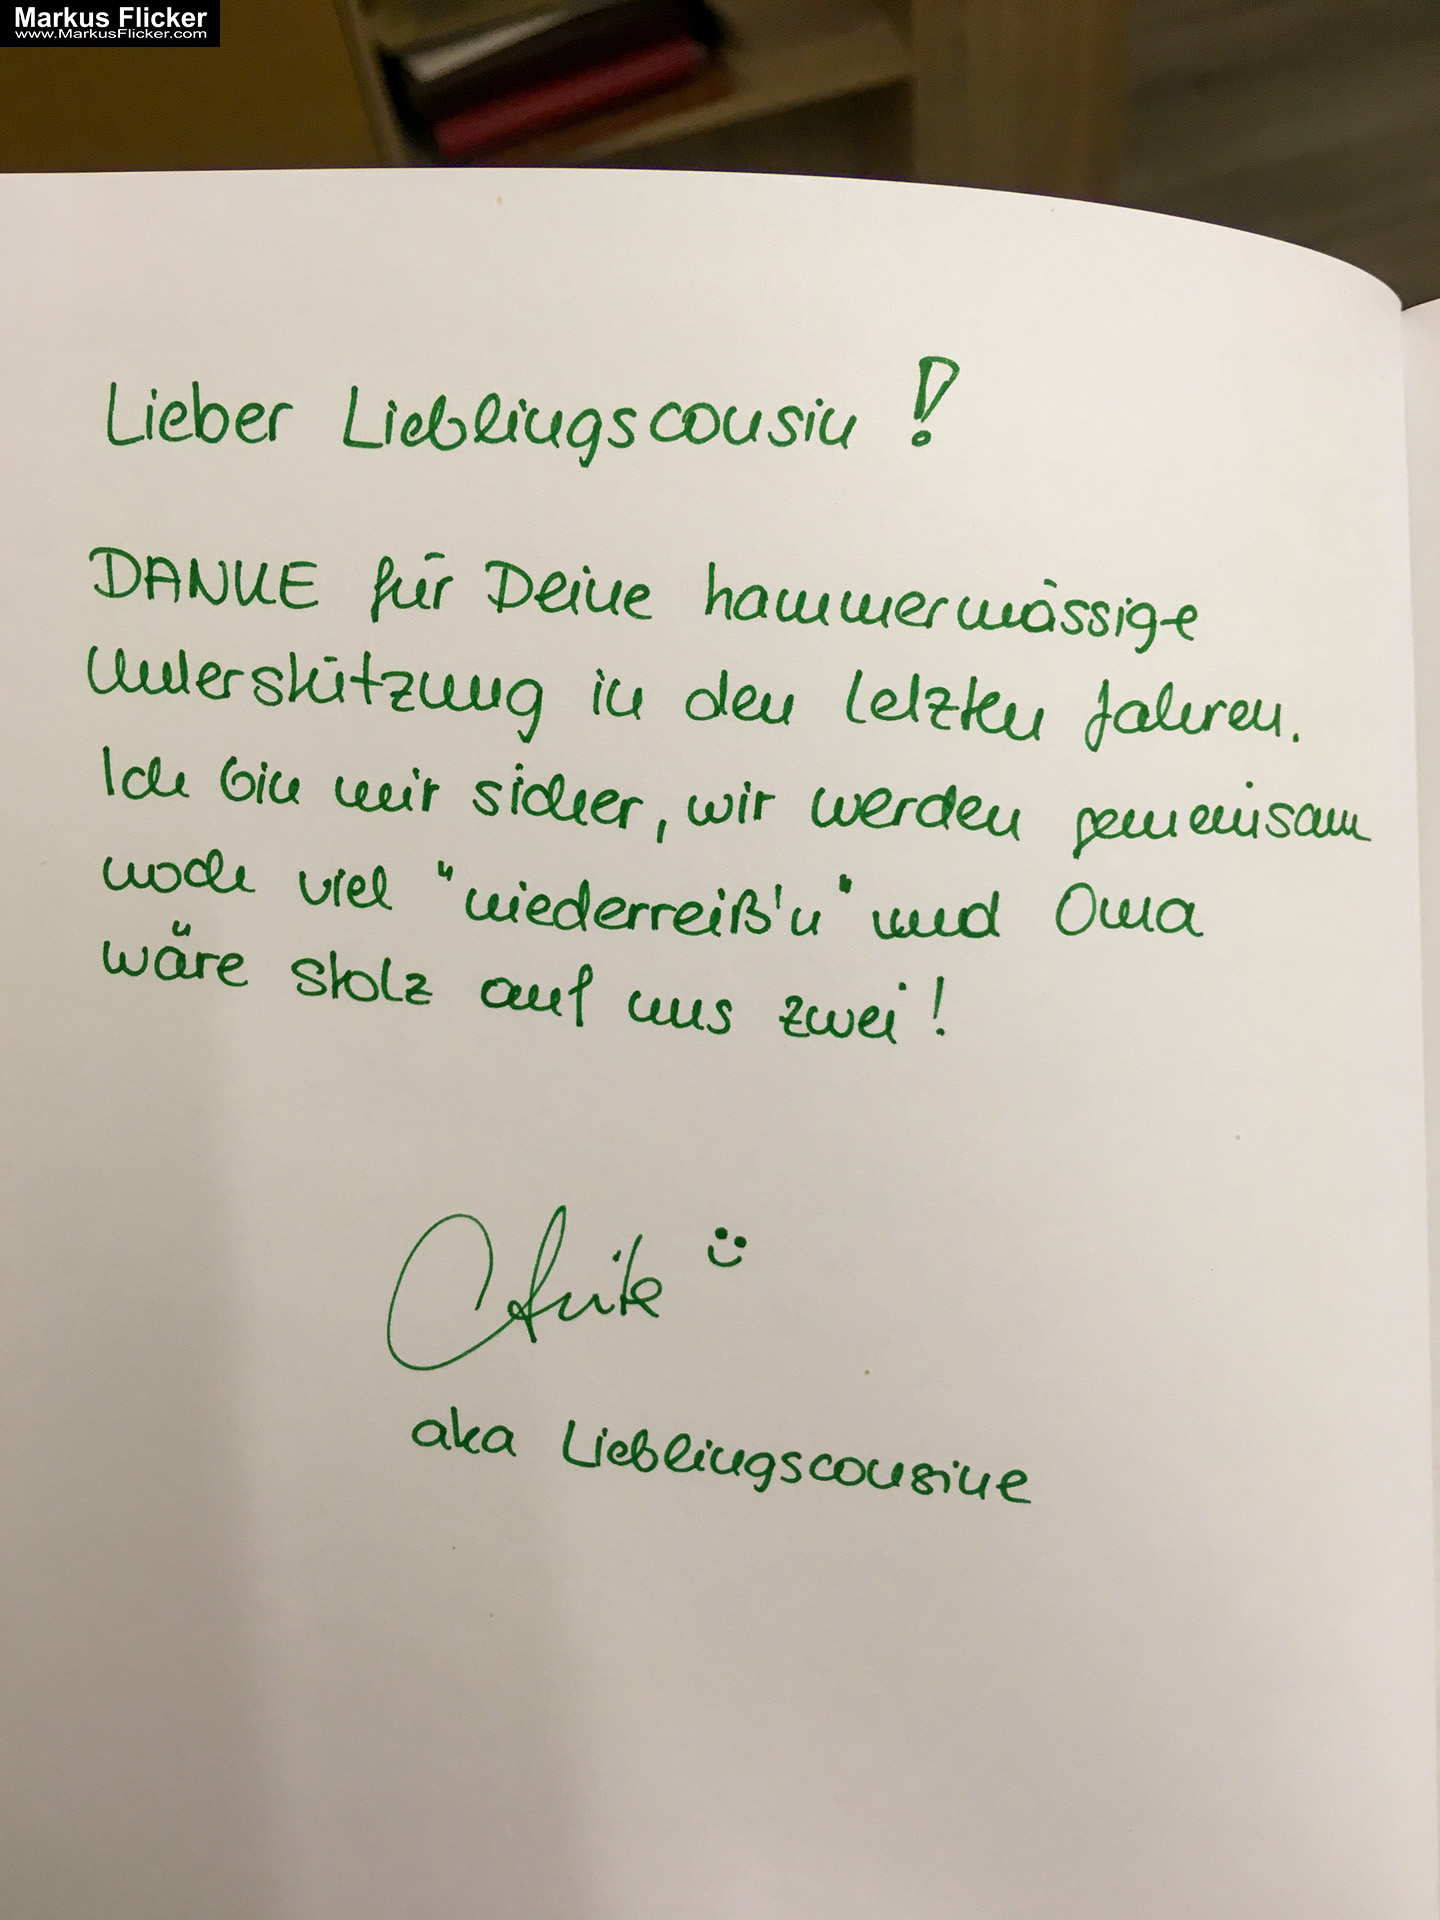 Markus Flicker
www.MarkusFlicker.com
Lieber Lieblingscousin!
DANKE für Deine hammermässige
Unterstützung in den letzten Jahren.
Ich bin mir sicher, wir werden gemeinsam
noch viel "niederreiß'n" und Oma
wäre stolz auf uns zwei!
aka Lieblingscousine